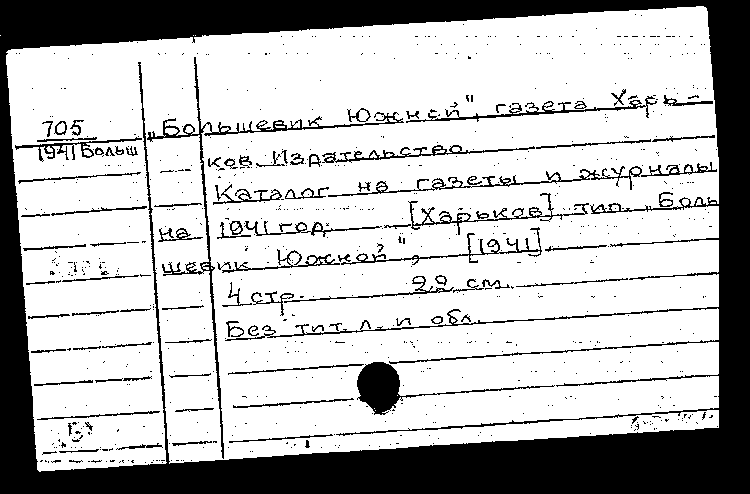 705
1941 Больш
„Большевик Южной", газета. Харь-
ков. Издательство.
Каталог на газеты и журналы
на 1941 год. [Харьков], тип. „Боль
шевик Южной", [1941].
4 стр. 22 см.
Без тит. л. и обл.